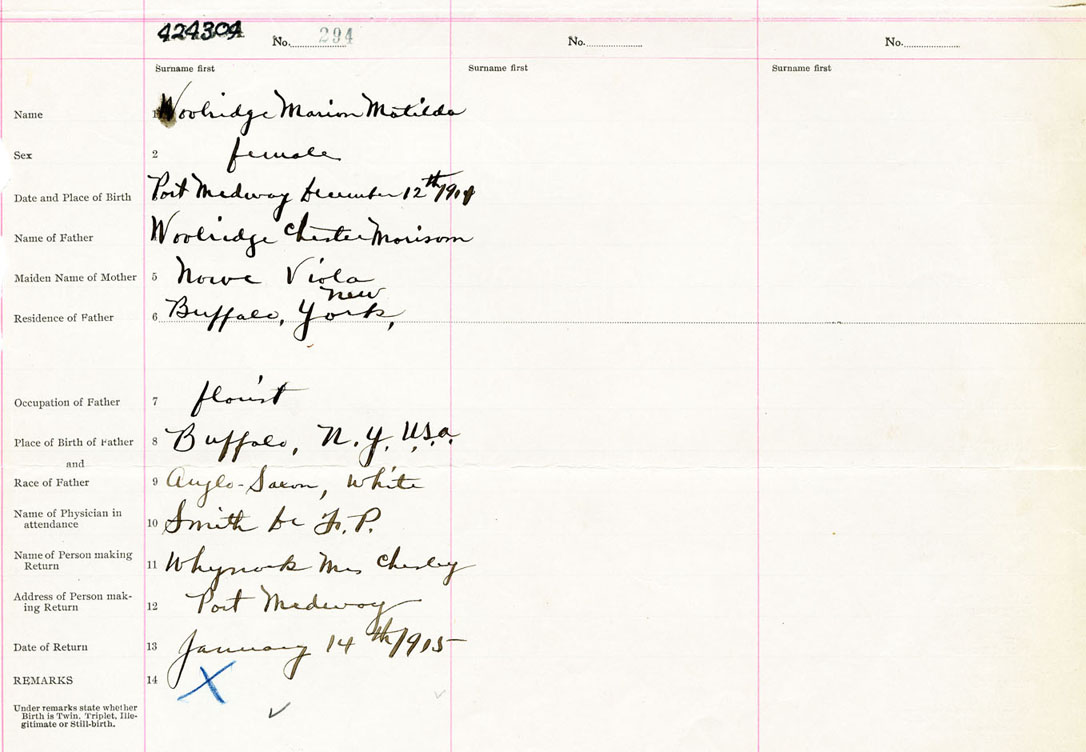 424304
No. 294
No.
No.
Surname first
Surname first
Surname first
Name 1 Woolridge Marion Matilda
Sex 2 female
Date and Place of Birth Port Medway December 12th 1914
Name of Father Woolridge Chester Morisom
Maiden Name of Mother 5 Nowe Viola
new
Residence of Father 6 Buffalo, York,
Occupation of Father 7 florist
Place of Birth of Father 8 Buffalo, N.Y. U.S.a.
and
Race of Father 9 Anglo-Saxon, White
Name of Physician in
attendance 10 Smith Dr F. P.
Name of Person making
Return 11 Whynock Mrs Chesley
Address of Person mak-
ing Return 12 Port Medway
Date of Return 13 January 14th 1915
REMARKS 14 X
Under remarks state whether
Birth is Twin, Triplet, Ille-
gitimate or Still-birth.